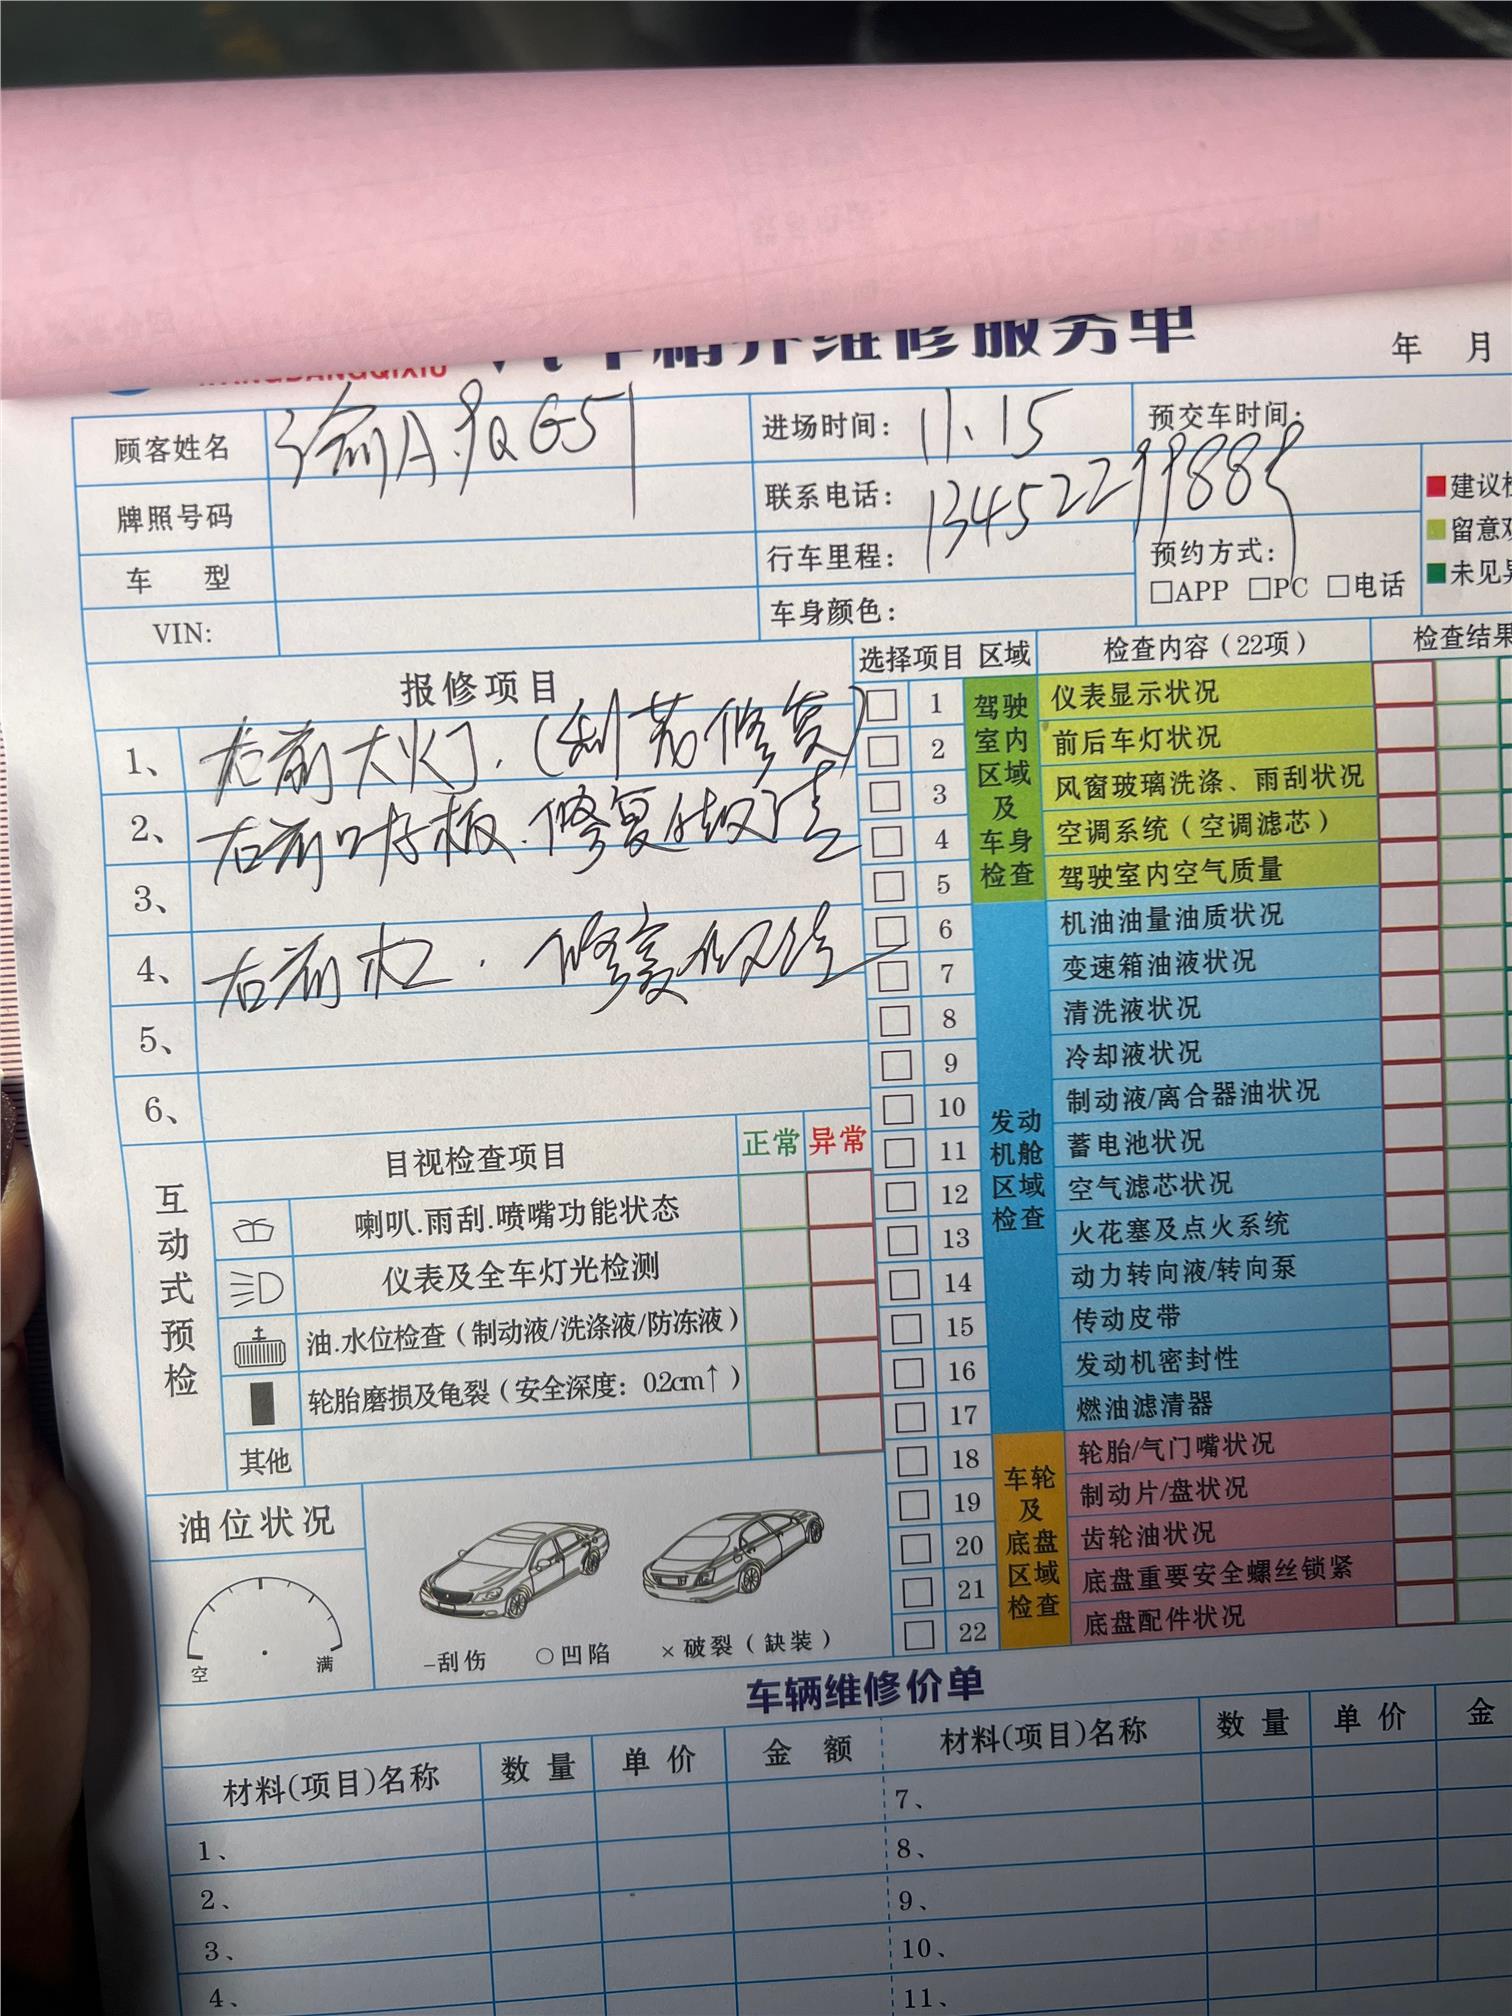 汽车精养维修服务单
年 月
顾客姓名 渝A·9QG51 进场时间: 11、15 预交车时间:
牌照号码 联系电话: 13452299889 建议检
车 型 行车里程: 预约方式: 留意观
□APP □PC □电话 未见异
VIN: 车身颜色:
报修项目
1、右前大灯.(刮花修复)
2、右前叶子板.修复做漆
3、
4、右前杠. 修复做漆
5、
6、
选择项目 区域 检查内容(22项) 检查结果
驾驶室内区域及车身检查
□ 1 仪表显示状况
□ 2 前后车灯状况
□ 3 风窗玻璃洗涤、雨刮状况
□ 4 空调系统(空调滤芯)
□ 5 驾驶室内空气质量
发动机舱区域检查
□ 6 机油油量油质状况
□ 7 变速箱油液状况
□ 8 清洗液状况
□ 9 冷却液状况
□ 10 制动液/离合器油状况
□ 11 蓄电池状况
□ 12 空气滤芯状况
□ 13 火花塞及点火系统
□ 14 动力转向液/转向泵
□ 15 传动皮带
□ 16 发动机密封性
□ 17 燃油滤清器
车轮及底盘区域检查
□ 18 轮胎/气门嘴状况
□ 19 制动片/盘状况
□ 20 齿轮油状况
□ 21 底盘重要安全螺丝锁紧
□ 22 底盘配件状况
互动式预检
目视检查项目 正常 异常
喇叭.雨刮.喷嘴功能状态
仪表及全车灯光检测
油.水位检查(制动液/洗涤液/防冻液)
轮胎磨损及龟裂(安全深度: 0.2cm↑)
其他
油位状况
空 满
–刮伤 ○凹陷 ×破裂(缺装)
车辆维修价单
材料(项目)名称 数 量 单 价 金 额 材料(项目)名称 数 量 单 价 金
1、 7、
2、 8、
3、 9、
4、 10、
11、